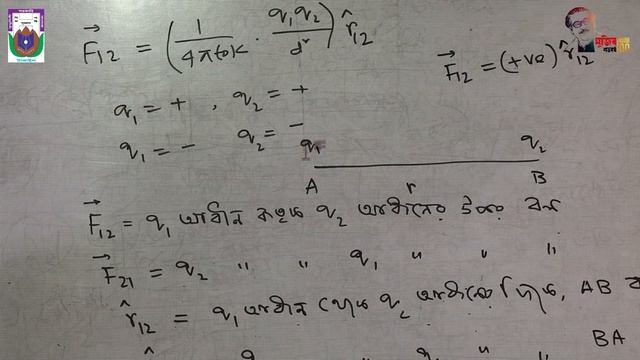 F⃗₁₂ = (1/4πε₀K · q₁q₂/d²) r̂₁₂
F⃗₁₂ = (+ve) r̂₁₂
q₁ = + , q₂ = +
q₁ = − q₂ = −
q₁ q₂
A r B
F⃗₁₂ = q₁ আধান কতৃক q₂ আধানের উপর বল
F⃗₂₁ = q₂ " " q₁ " " "
r̂₁₂ = q₁ আধান থেকে q₂ আধানের দিকে, AB
BA